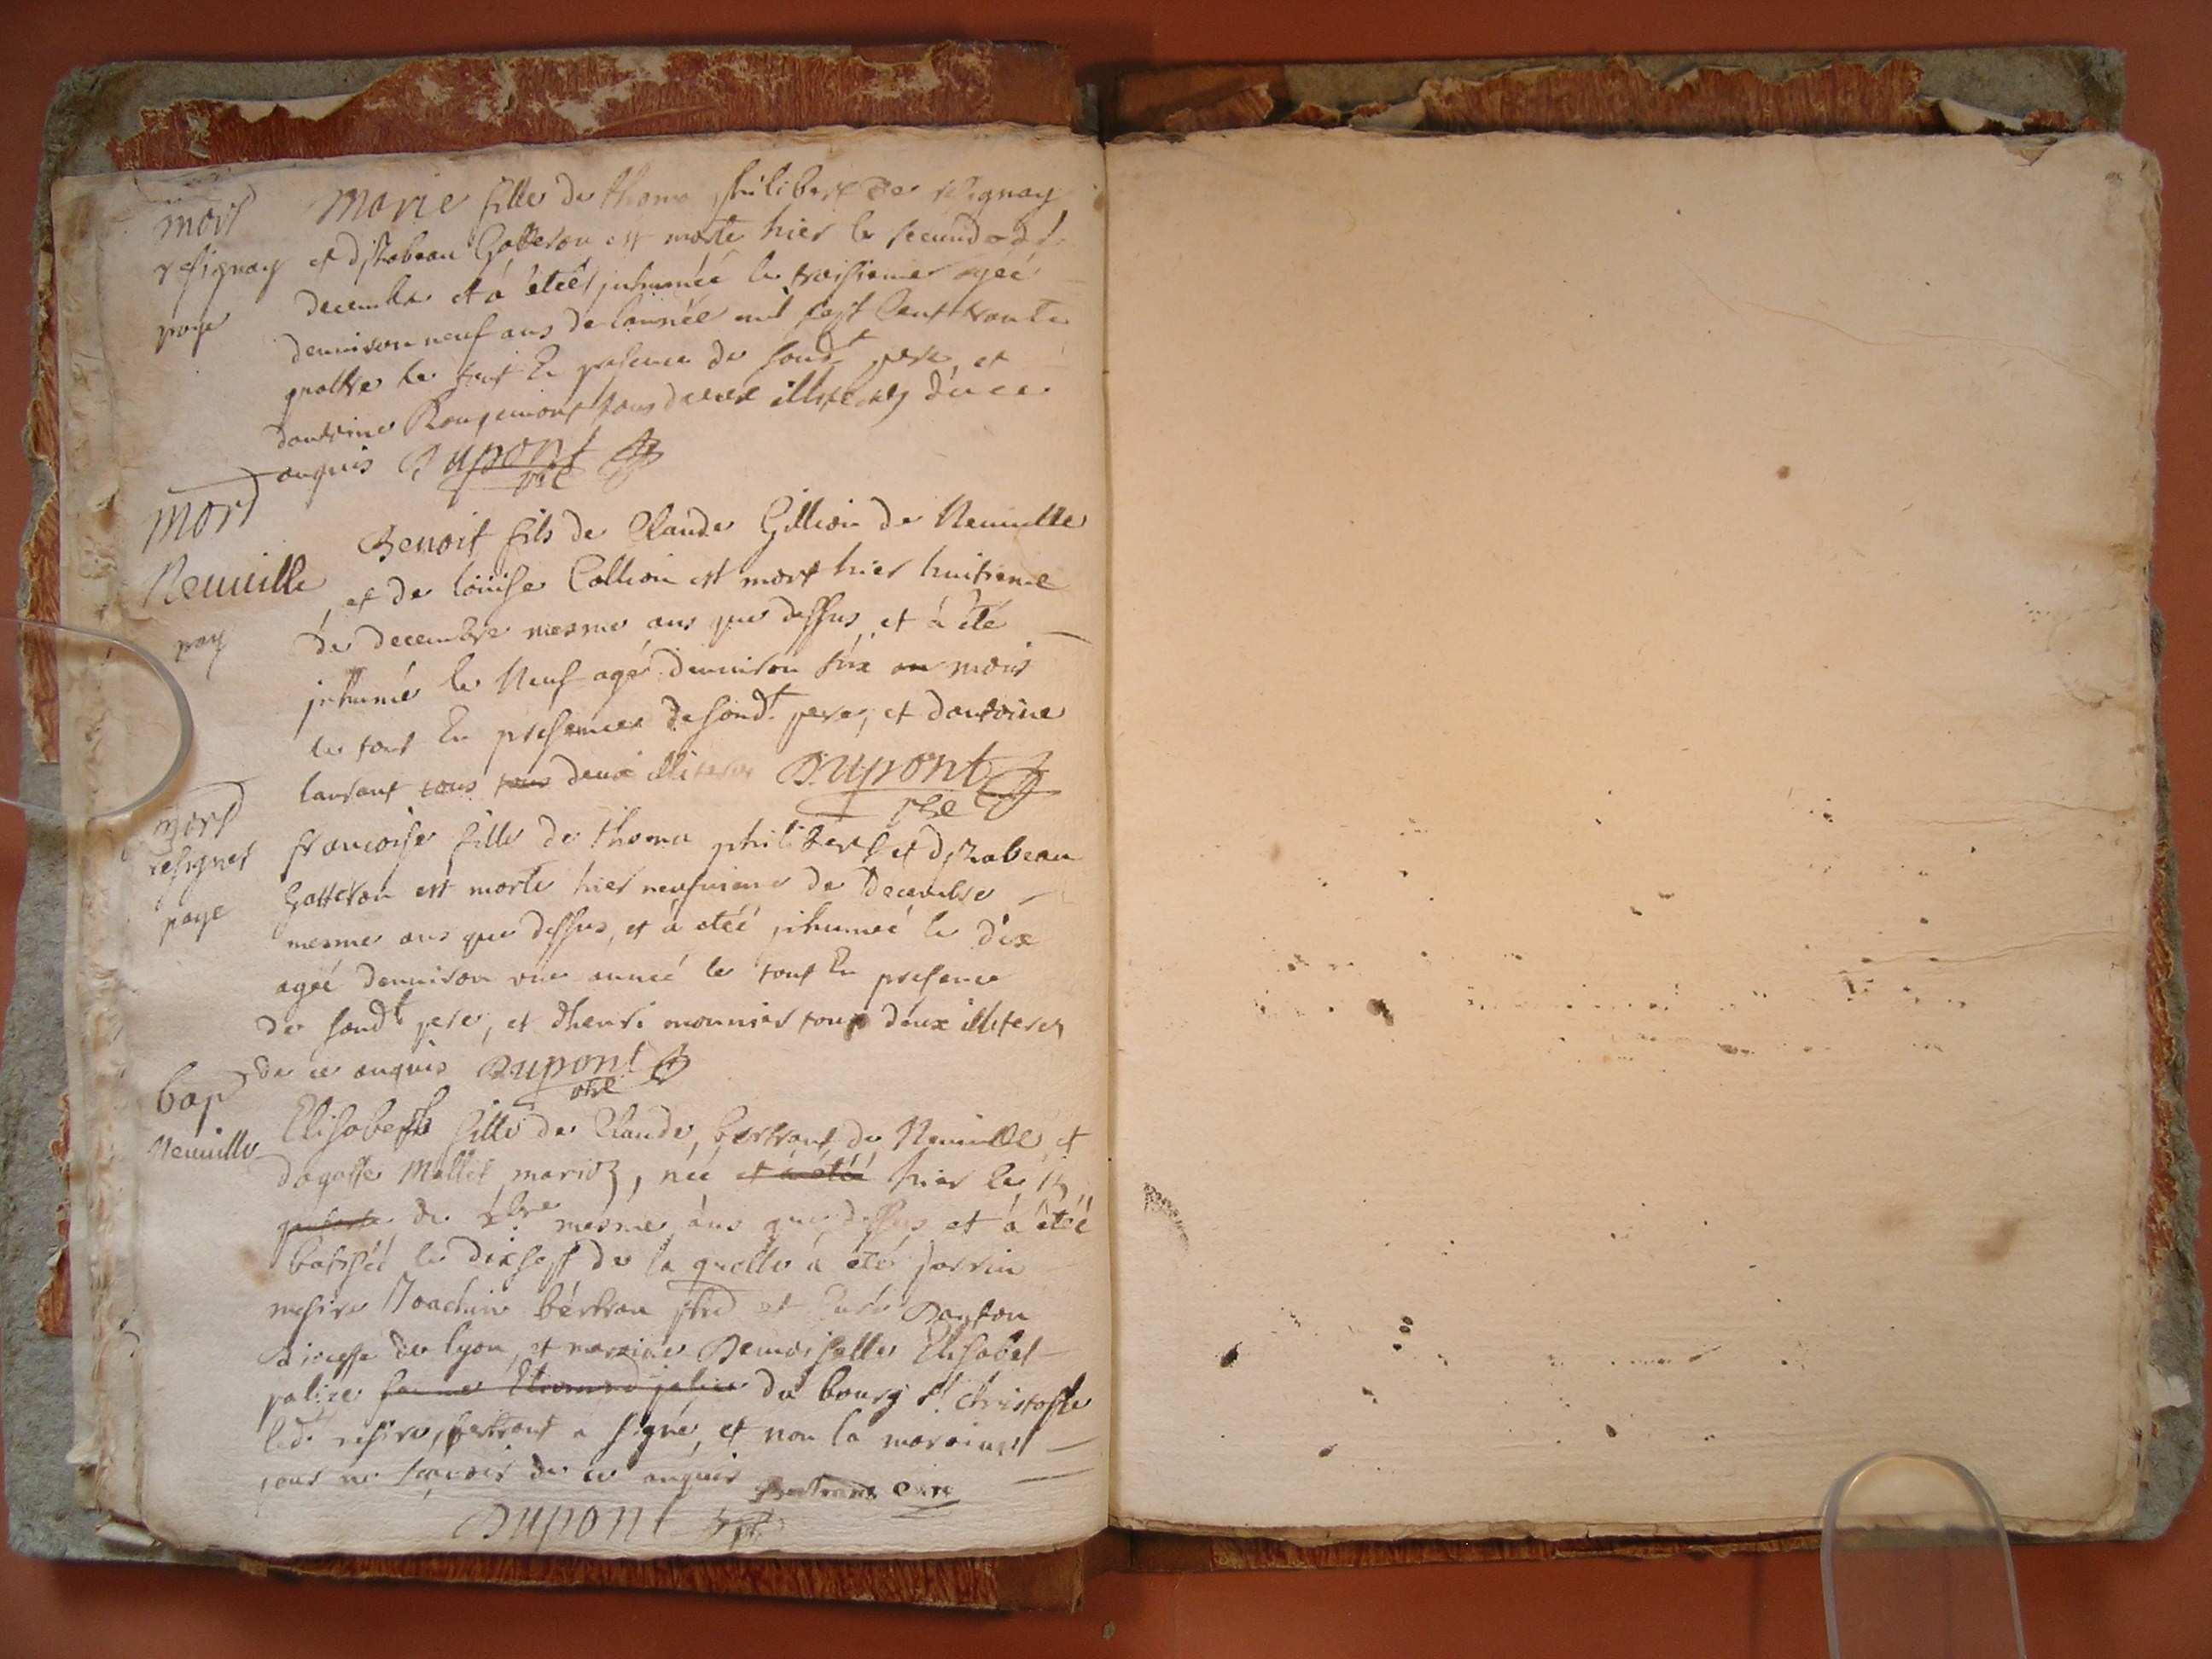 mort
resignay
paye
Marie fille de thoma philibert de resignay
et dysabeau Gatteron est morte hier le second de
decembre et à étéé jnhuméé le troisieme agéé
denviron neuf ans de lannéé mil sept cent trante
quattre le tout En presence de sond.t pere, et
dantoine Rougemont tous deux illiterez de ce
anquis Dupont
ptre
Mort
Neuville
pay
Benoit fils de Claude Gillion de Neuville
et de loüise Collion est mort hier huitieme
de decembre mesme ans que dessus et à été
jnhumé le Neuf agé denviron six an mois
le tout En presence de sond.t pere, et dantoine
laurant tous tous deux illiterez Dupont
ptre
mort
resigner
paye
francoise fille de thoma philibert et dysabeau
Gatteron est morte hier neufvieme de decembre
mesme ans que dessus, et à étéé jnhuméé le dix
agéé denviron une annéé le tout En presence
de sond.t pere, et dhenri monnier tous deux illiterez
de ce anquis Dupont
ptre
bap
Neuville
Elisabeth fille de Claude bertrant de Neuville, et
dagathe Mallet mariez, néé et à étéé hier le 15
de Xbre mesme ans que dessus et à étéé
batiséé le dixsept de la quelle à été parrin
mesire Joachin bertran ptre et Curé
diocesse de lyon, et marainne Demoiselle Elisabet
palice du bourg St Christofle
led. mesire bertrant à signé, et non la maraine
pour ne sçavoir de ce anquis Bertrand Curé
Dupont ptre